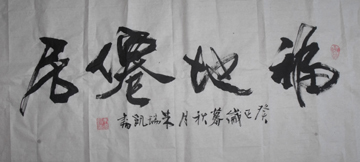 福地僊居
癸巳歲暮秋月朱福凱書